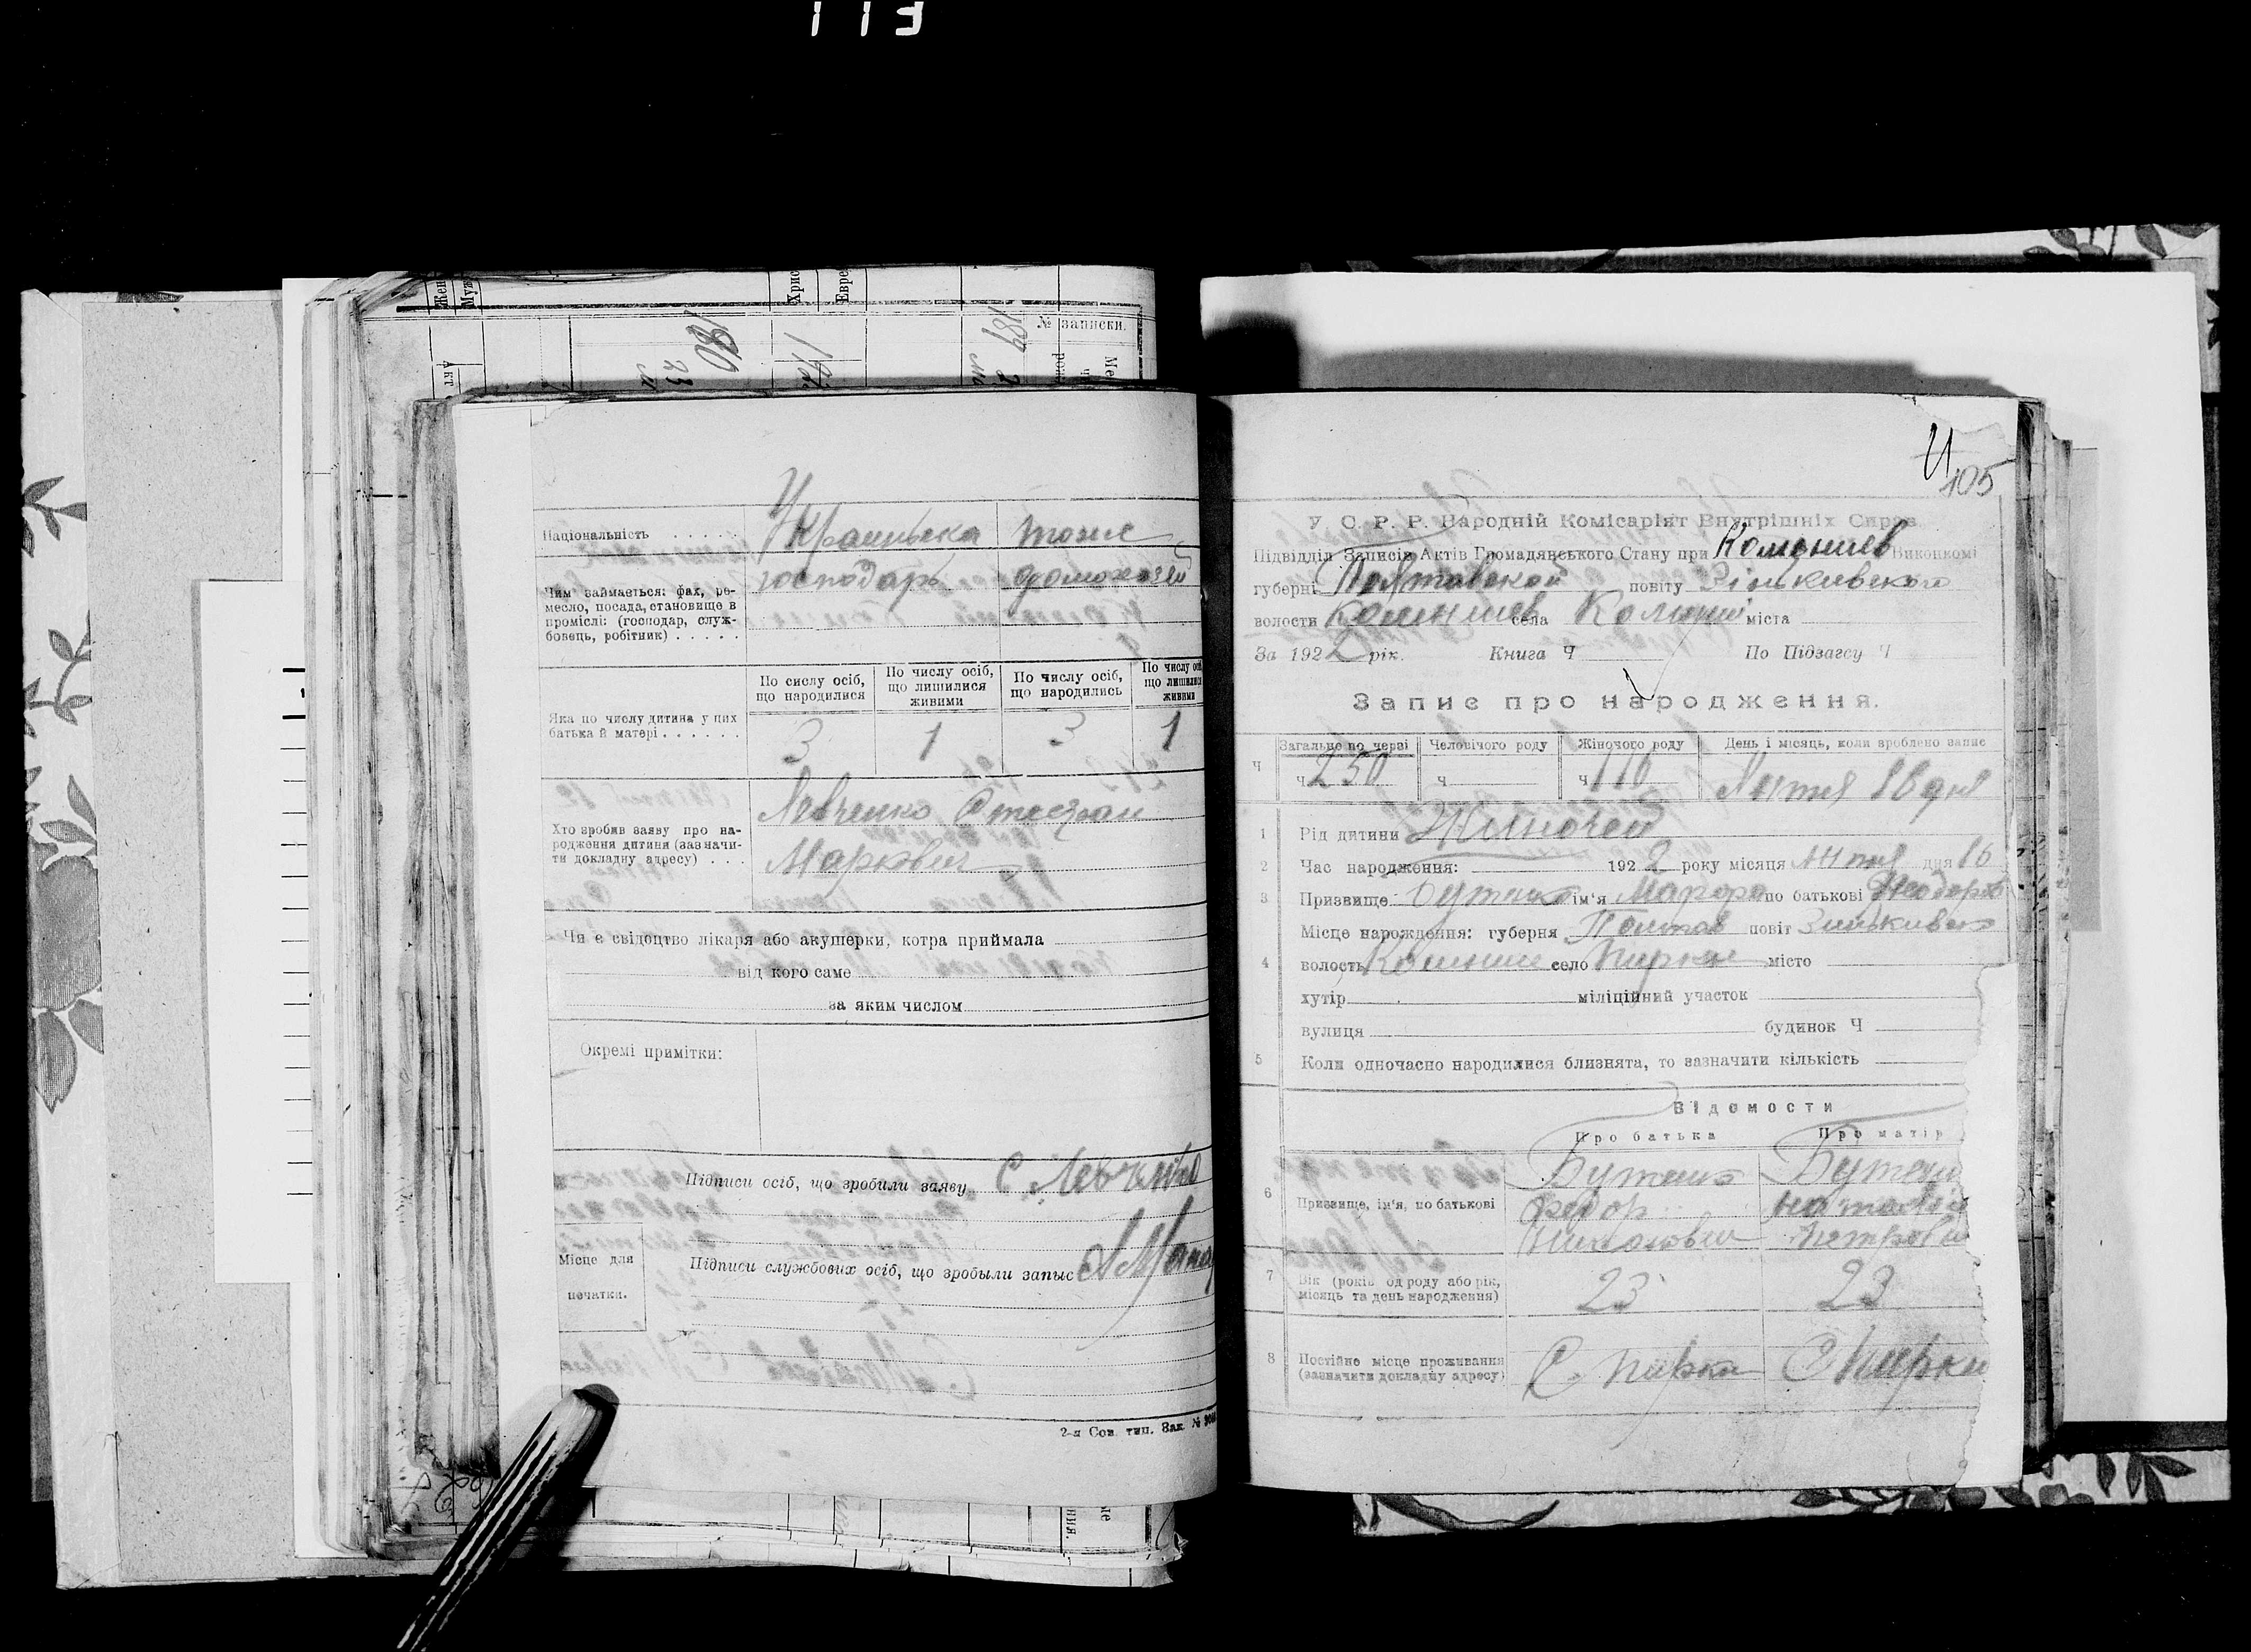 113
Жен
Муж
Хрис
Евре
№ записки.
180
189
Національність . . . . .
Украинська
тоже
Чим займається: фах, ре-
месло, посада, становище в
проміслі: (господар, служ-
бовець, робітник) . . . . .
господарь
домохозяй
По сислу осіб,
що народилися
По числу осіб,
що лишилися
живими
По числу осіб,
що народились
По числу осі
що лишилися
живими
Яка по числу дитина у цих
батька й матері . . . . . .
3
1
3
1
Хто зробив заяву про на-
родження дитини (зазначи-
ти докладну адресу) . . .
Левченко Стефан
Маркович
Чи є свідоцтво лікаря або акушерки, котра приймала
від кого саме
за яким числом
Окремі примітки:
Підписи осіб, що зробили заяву
С Левченко
Місце для
печатки.
Підписи службових осіб, що зробыли запыс
2-я Сов. тип. Зак. №
105
У. С. Р. Р. Народній Комісаріят Внутрішніх Справ.
Підвідділ Записів Актів Громадянського Стану при Комишев Виконкомі
губерні Полтавской повіту Зіньківского
волости Комишев села міста
За 1922 рік. Книга Ч По Підзагсу Ч
Запис про народження.
Загальне по черзі
Человічого роду
Жіночого роду
День і місяць, коли зроблено запис
Ч
ч 250
ч
ч 116
Лютня 16 дня
1 Рід дитини Жиночей
2 Час народження: 1922 року місяця Лютня дня 16
3 Призвище Бутенко ім'я по батькові Феодоров
4 Місце народження: губерня Полтав повіт Зиньківск
волость Комиши село Пирки місто
хутір міліційний участок
вулиця будинок Ч
5 Коли одночасно народилися близнята, то зазначити кількість
Відомости
Про батька
Про матір
6 Призвище, ім'я, по батькові
Бутенко
Федор
Николович
Бутенко
Наталія
Петровн
7 Вік (років од роду або рік,
місяць та день народження)
23
23
8 Постійне місце проживання
(зазначити докладну адресу)
С. Пирки
С Пирки